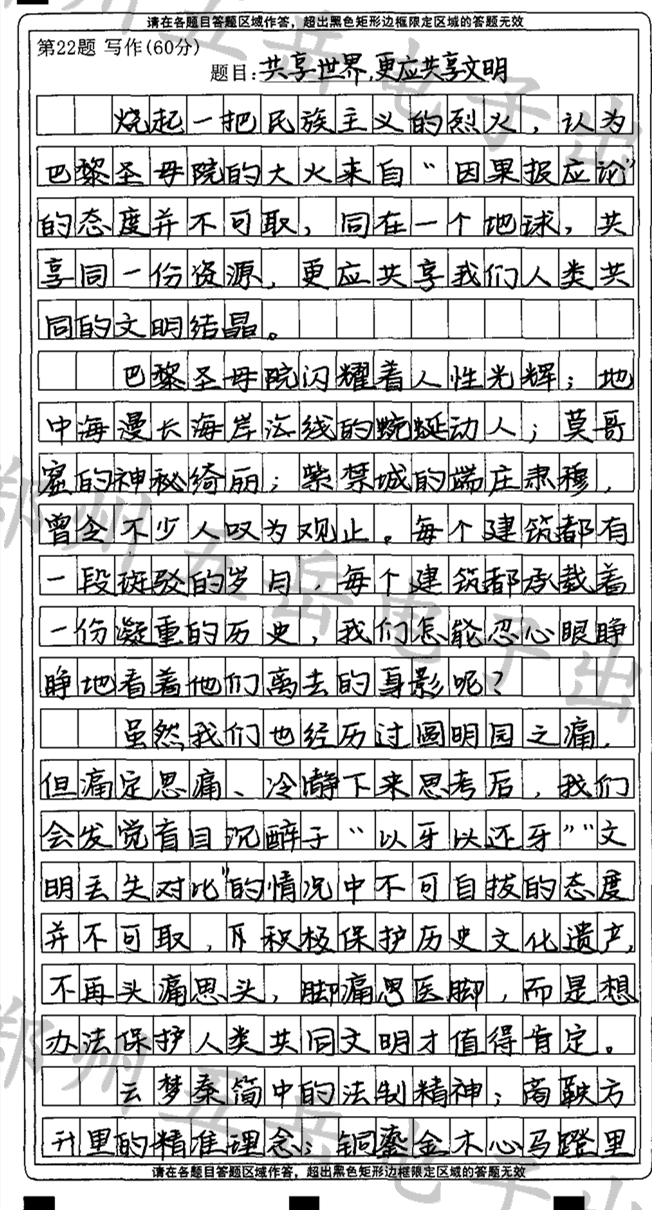 请在各题目答题区域作答，超出黑色矩形边框限定区域的答题无效
第22题 写作(60分)
题目:共享世界,更应共享文明
烧起一把民族主义的烈火，认为
巴黎圣母院的大火来自“因果报应论”
的态度并不可取，同在一个地球，共
享同一份资源，更应共享我们人类共
同的文明结晶。
巴黎圣母院闪耀着人性光辉；地
中海漫长海岸沿线的蜿蜒动人；莫哥
窟的神秘绮丽；紫禁城的端庄肃穆，
曾令不少人叹为观止。每个建筑都有
一段斑驳的岁月，每个建筑都承载着
一份凝重的历史，我们怎能忍心眼睁
睁地看着他们离去的身影呢？
虽然我们也经历过圆明园之痛，
但痛定思痛、冷静下来思考后，我们
会发觉盲目沉醉于“以牙以还牙”“文
明丢失对比”的情况中不可自拔的态度
并不可取，积极保护历史文化遗产，
不再头痛思头，脚痛思医脚，而是想
办法保护人类共同文明才值得肯定。
云梦秦简中的法制精神；商鞅方
升里的精准理念；铜鎏金木心马蹬里
请在各题目答题区域作答，超出黑色矩形边框限定区域的答题无效
郑州五岳电子出
郑州五岳电子出
郑州五岳电子出